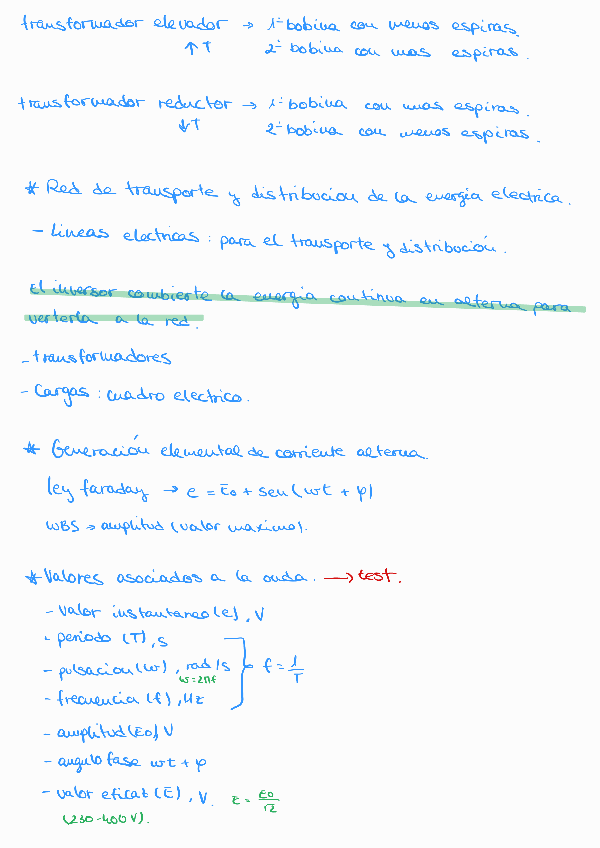 transformador elevador → 1ª bobina con menos espiras.
↑T 2ª bobina con mas espiras.
transformador reductor → 1ª bobina con mas espiras.
↓T 2ª bobina con menos espiras.
* Red de transporte y distribucion de la energia electrica.
- Lineas electricas : para el transporte y distribución.
El inversor combierte la energia continua en alterna para
verterla a la red.
- transformadores
- Cargas : cuadro electrico.
* Generación elemental de corriente alterna.
ley faraday → e = E0 + sen (wt + φ)
WBS → amplitud (valor maximo).
* Valores asociados a la onda. → test.
- valor instantaneo (e), V
- periodo (T), s
- pulsacion (w), rad/s f = 1/T
w = 2πf
- frecuencia (f), Hz
- amplitud (E0) V
- angulo fase wt + φ
- valor eficaz (E), V. E = E0/√2
(230-400 V).